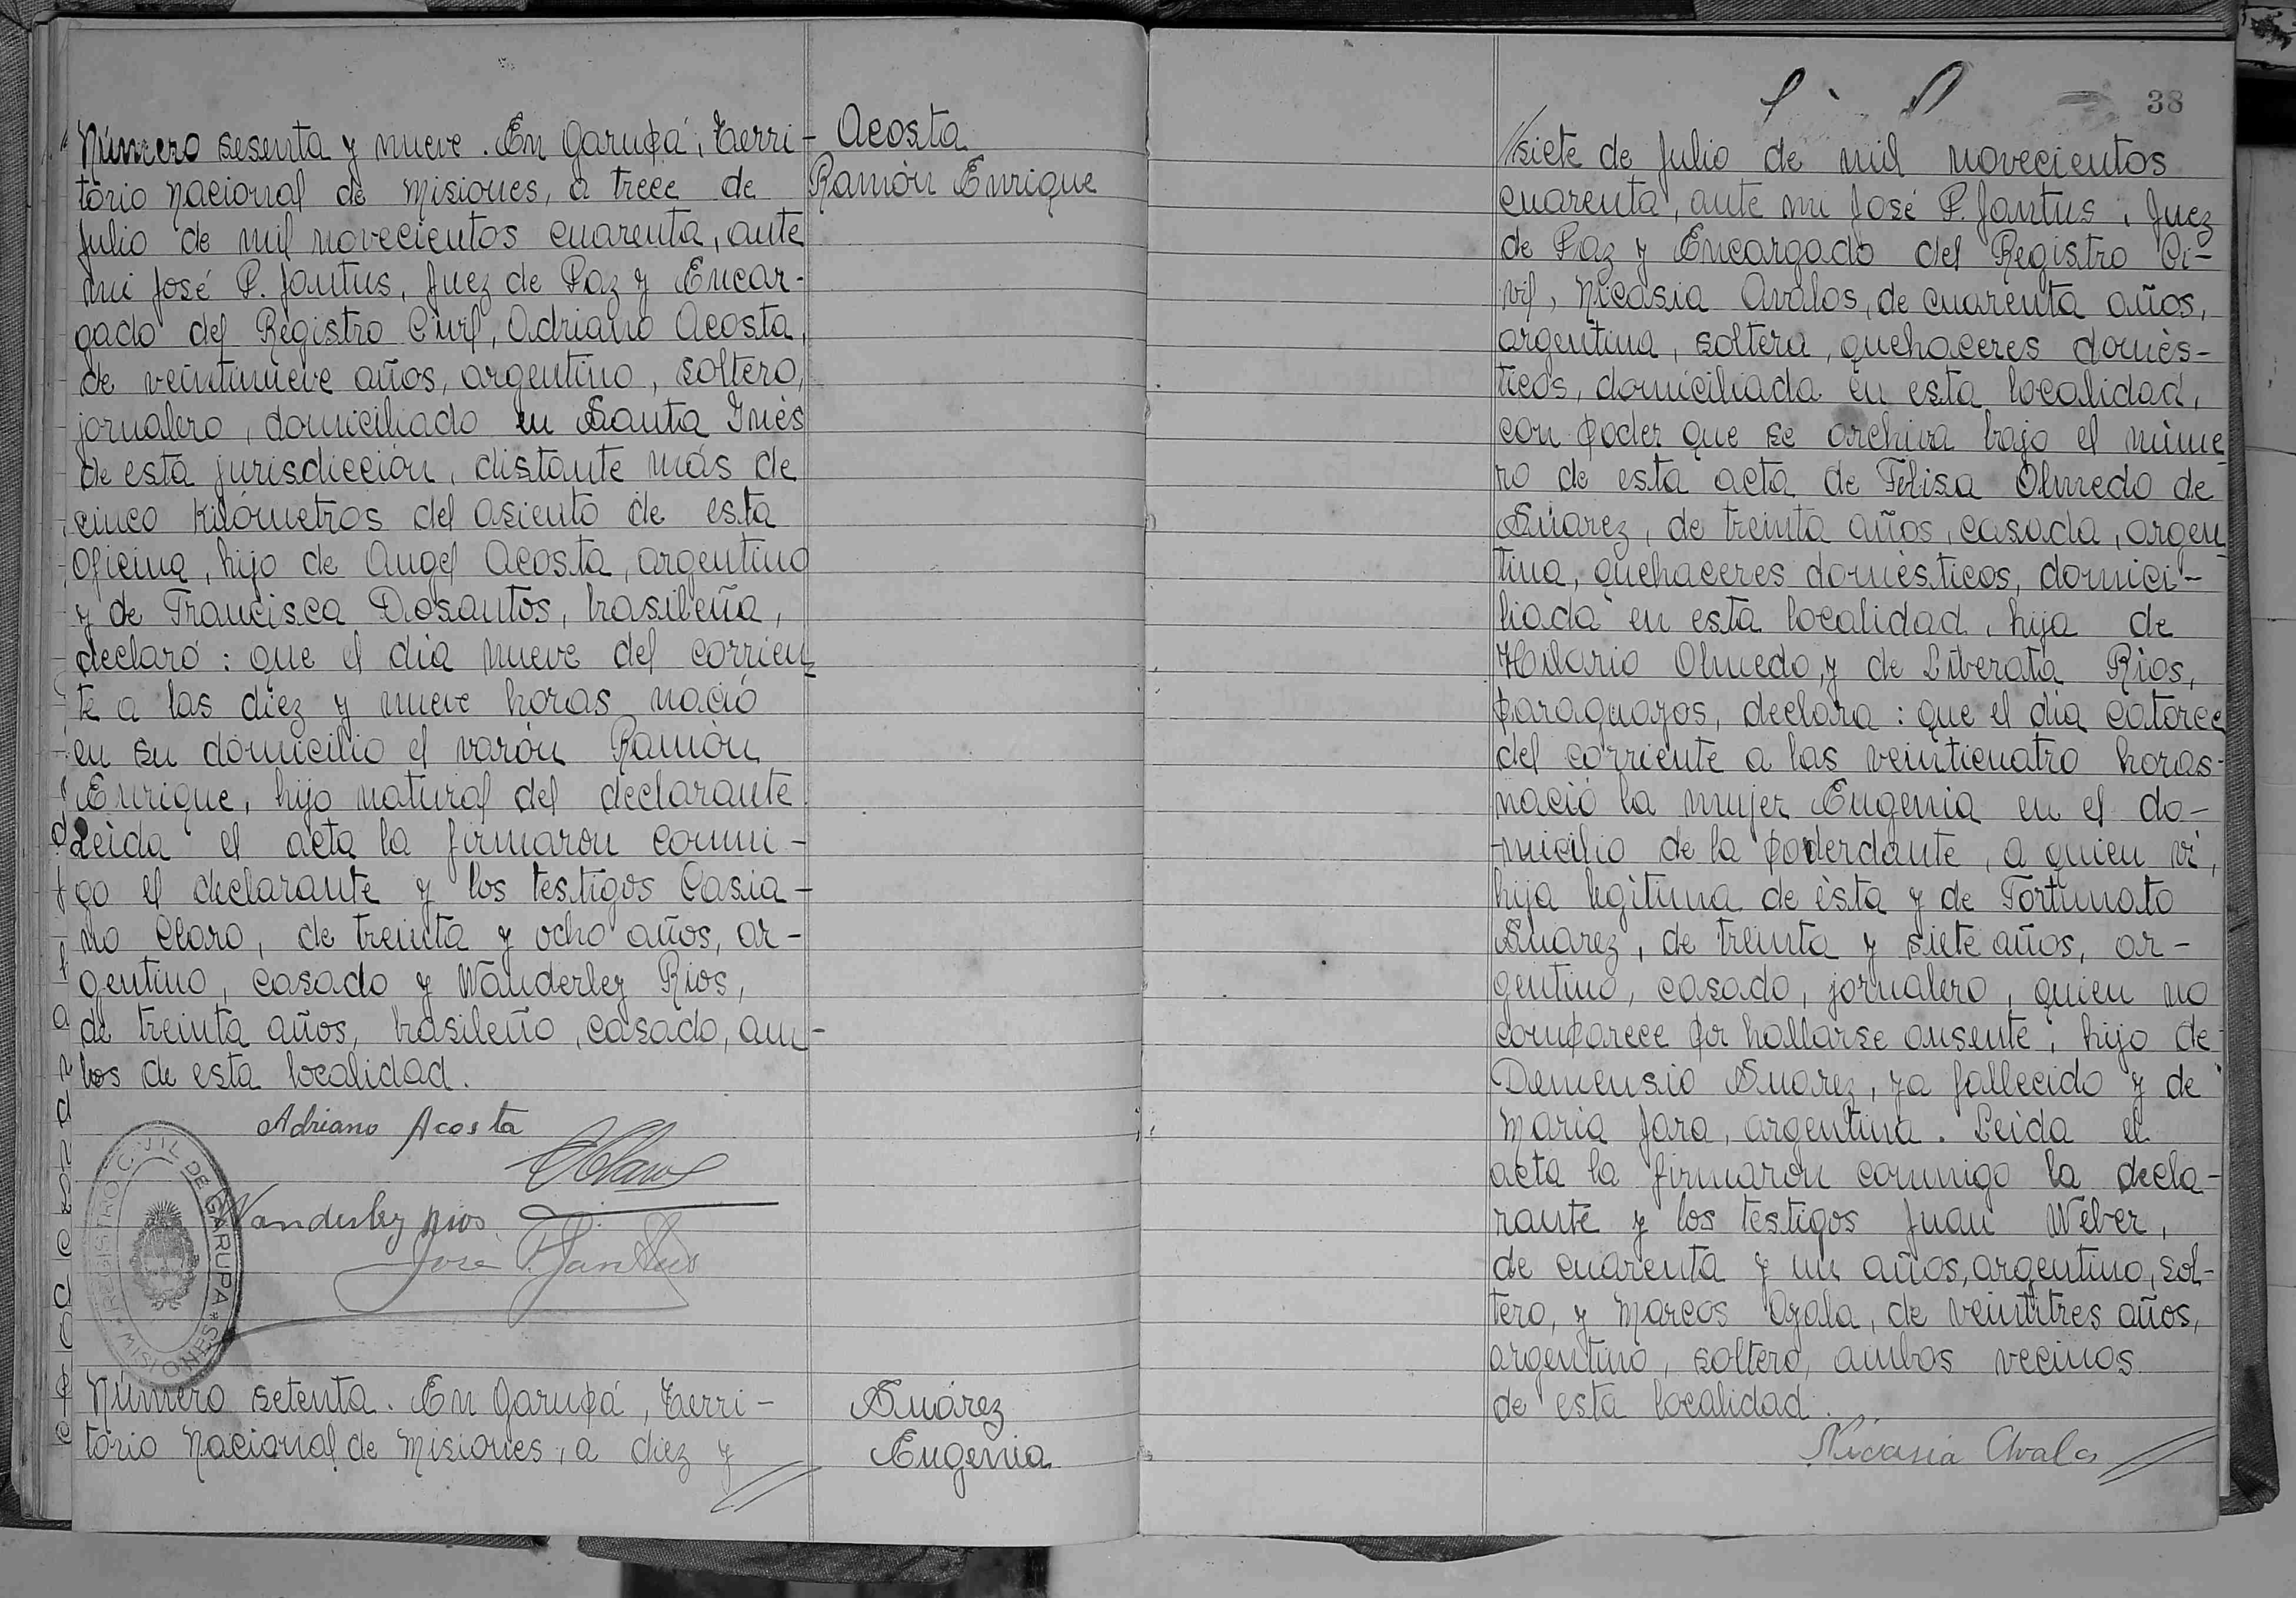 Número sesenta y nueve. En Garupá, Terri-
torio Nacional de Misiones, a trece de
Julio de mil novecientos cuarenta, ante
mi José P. Jantus, Juez de Paz y Encar-
gado del Registro Civil, Adriano Acosta,
de veintinueve años, argentino, soltero,
jornalero, domiciliado en Santa Inés
de esta jurisdicción, distante más de
cinco kilómetros del asiento de esta
Oficina, hijo de Angel Acosta, argentino
y de Francisca Dosantos, brasileña,
declaró: que el día nueve del corrien
te a las diez y nueve horas nació
en su domicilio el varón Ramón
Enrique, hijo natural del declarante.
Leida el acta la firmaron conmi-
go el declarante y los testigos Casia-
no Claro, de treinta y ocho años, ar-
gentino, casado y Wanderley Rios,
de treinta años, brasileño, casado, am-
bos de esta localidad.
Adriano Acosta
Wanderley rios
José P. Jantus
REGISTRO CIVIL DE GARUPA
MISIONES
Número setenta. En Garupá, Terri-
torio Nacional de Misiones, a diez y
Acosta
Ramón Enrique
Suárez
Eugenia
38
//siete de Julio de mil novecientos
cuarenta, ante mi José P. Jantus, Juez
de Paz y Encargado del Registro Ci-
vil, Nicasia Avalos, de cuarenta años,
argentina, soltera, quehaceres domés-
ticos, domiciliada en esta localidad,
con poder que se archiva bajo el núme
ro de esta acta de Felisa Olmedo de
Suárez, de treinta años, casada, argen
tina, quehaceres domésticos, domici-
liada en esta localidad, hija de
Hilario Olmedo y de Liberata Rios,
paraguayos, declara: que el día catorce
del corriente a las veinticuatro horas
nació la mujer Eugenia en el do-
micilio de la poderdante, a quien ví,
hija legítima de ésta y de Fortunato
Suarez, de treinta y siete años, ar-
gentino, casado, jornalero, quien no
comparece por hallarse ausente, hijo de
Demensio Suarez, ya fallecido y de
Maria Jara, argentina. Leida el
acta la firmaron conmigo la decla-
rante y los testigos Juan Weber,
de cuarenta y un años, argentino, sol-
tero, y Marcos Ayala, de veintitres años,
argentino, soltero, ambos vecinos
de esta localidad.
Nicasia Avalos